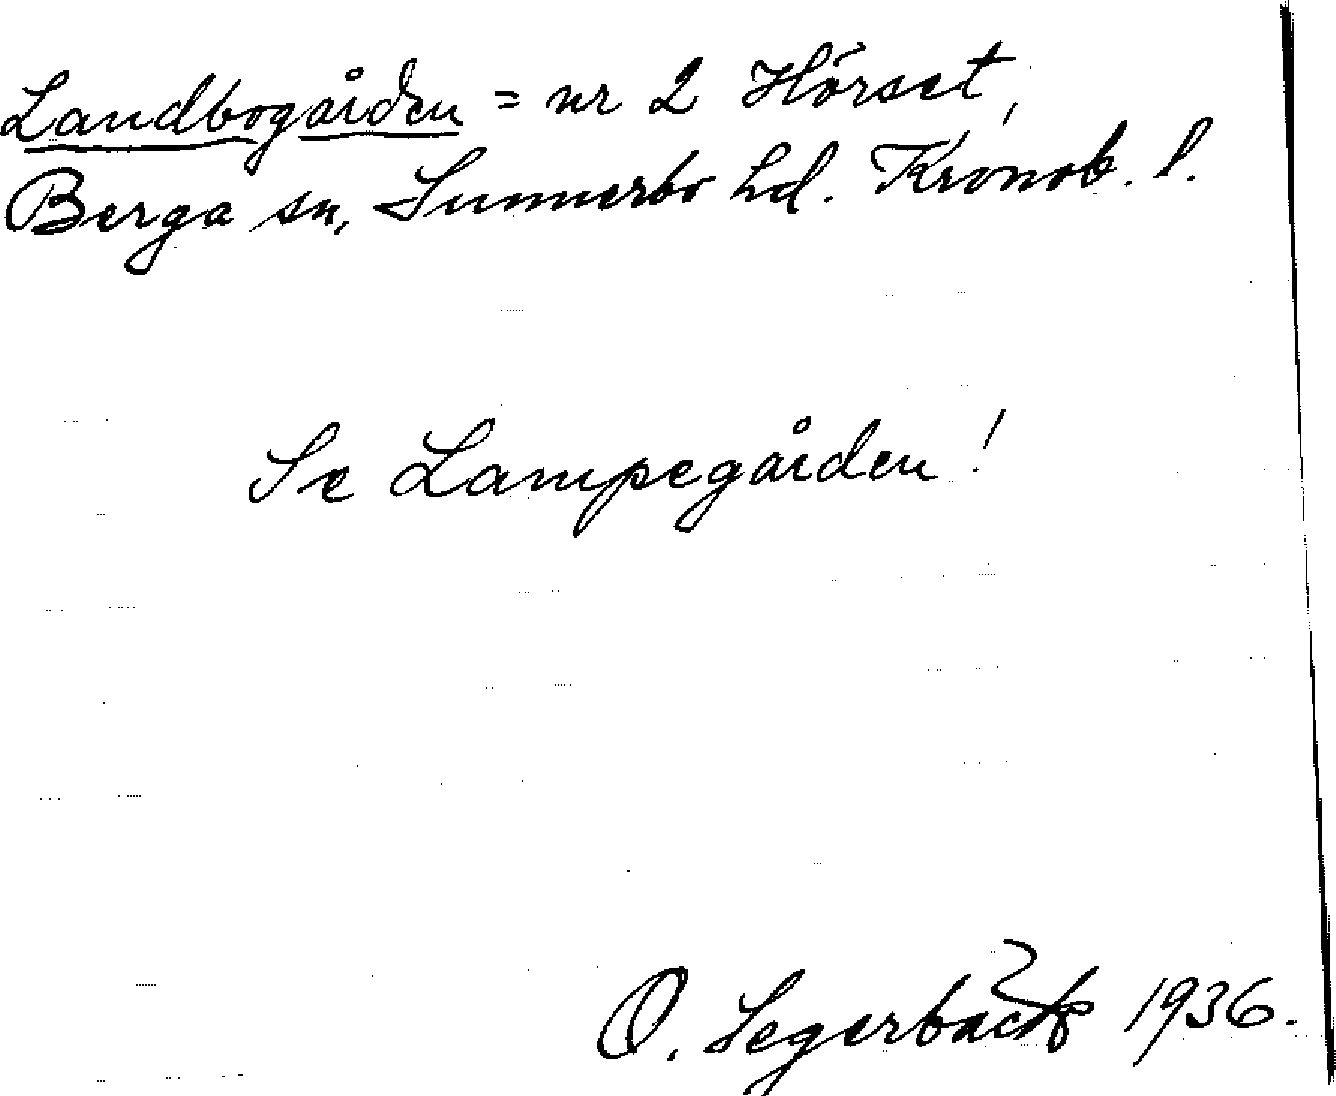 Landbogården = nr 2 Hörset,
Berga sn, Sunnerbo hd. Kronob. l.
Se Lampegården!
O. Segerbäck 1936.